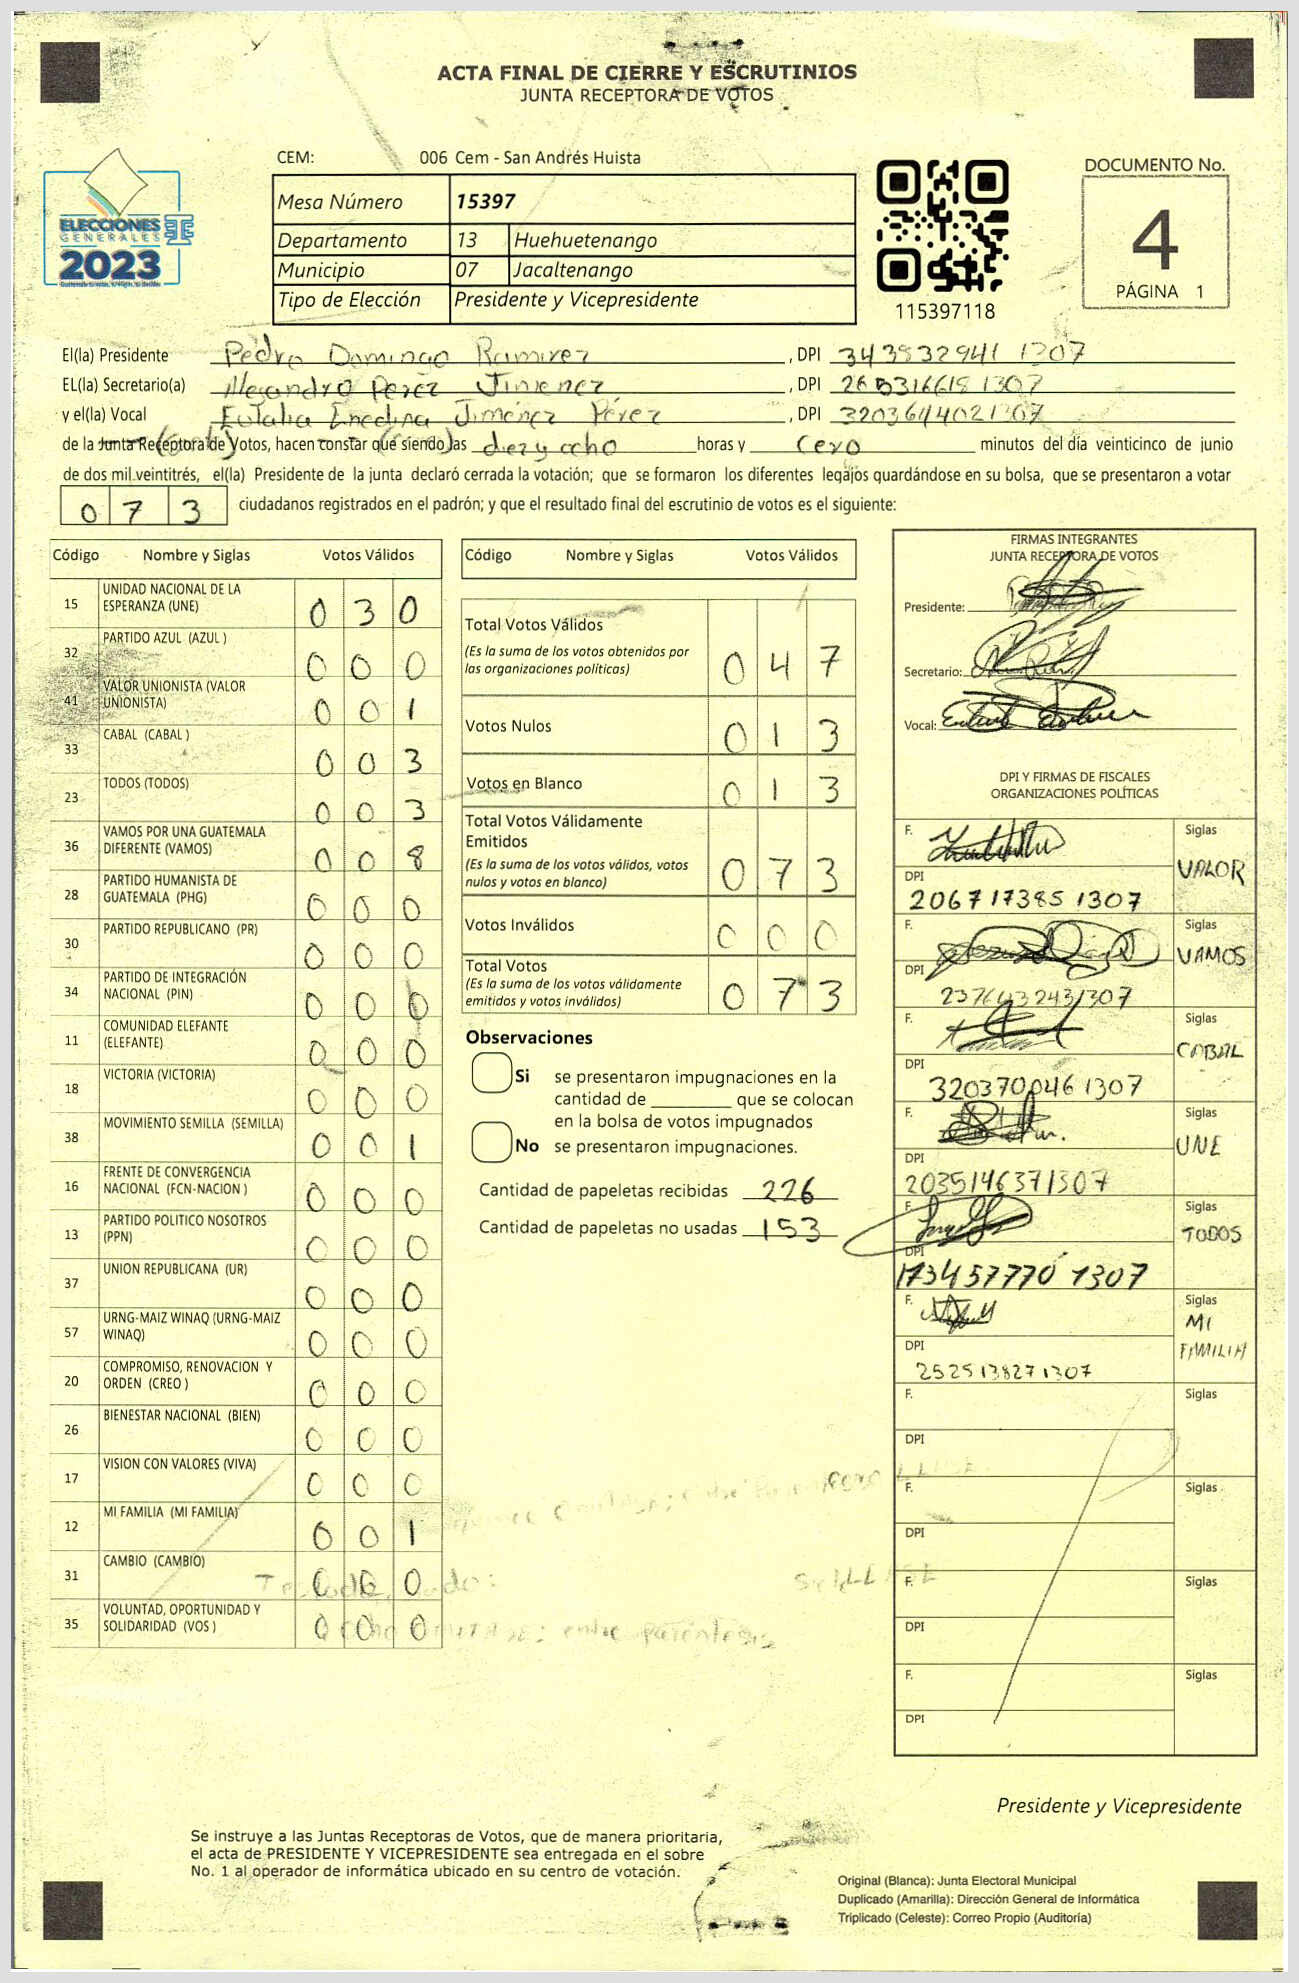 ACTA FINAL DE CIERRE Y ESCRUTINIOS
JUNTA RECEPTORA DE VOTOS
CEM: 006 Cem - San Andrés Huista
ELECCIONES
GENERALES
2023
Mesa Número 15397
Departamento 13 Huehuetenango
Municipio 07 Jacaltenango
Tipo de Elección Presidente y Vicepresidente
115397118
DOCUMENTO No.
4
PÁGINA 1
El(la) Presidente Pedro Domingo Ramirez , DPI 343832941 1307
EL(la) Secretario(a) Alejandro Perez Jimenez , DPI 265316619 1307
y el(la) Vocal Eulalia Enedina Jiménez Pérez , DPI 3203644021307
de la Junta Receptora de Votos, hacen constar que siendo las diez y ocho horas y cero minutos del día veinticinco de junio
de dos mil veintitrés, el(la) Presidente de la junta declaró cerrada la votación; que se formaron los diferentes legajos guardándose en su bolsa, que se presentaron a votar
073 ciudadanos registrados en el padrón; y que el resultado final del escrutinio de votos es el siguiente:
Código Nombre y Siglas Votos Válidos
15 UNIDAD NACIONAL DE LA ESPERANZA (UNE) 030
32 PARTIDO AZUL (AZUL ) 000
41 VALOR UNIONISTA (VALOR UNIONISTA) 001
33 CABAL (CABAL ) 003
23 TODOS (TODOS) 003
36 VAMOS POR UNA GUATEMALA DIFERENTE (VAMOS) 008
28 PARTIDO HUMANISTA DE GUATEMALA (PHG) 000
30 PARTIDO REPUBLICANO (PR) 000
34 PARTIDO DE INTEGRACIÓN NACIONAL (PIN) 000
11 COMUNIDAD ELEFANTE (ELEFANTE) 000
18 VICTORIA (VICTORIA) 000
38 MOVIMIENTO SEMILLA (SEMILLA) 001
16 FRENTE DE CONVERGENCIA NACIONAL (FCN-NACION ) 000
13 PARTIDO POLITICO NOSOTROS (PPN) 000
37 UNION REPUBLICANA (UR) 000
57 URNG-MAIZ WINAQ (URNG-MAIZ WINAQ) 000
20 COMPROMISO, RENOVACION Y ORDEN (CREO ) 000
26 BIENESTAR NACIONAL (BIEN) 000
17 VISION CON VALORES (VIVA) 000
12 MI FAMILIA (MI FAMILIA) 001
31 CAMBIO (CAMBIO) 000
35 VOLUNTAD, OPORTUNIDAD Y SOLIDARIDAD (VOS ) 000
entre paréntesis
Código Nombre y Siglas Votos Válidos
Total Votos Válidos 047
(Es la suma de los votos obtenidos por
las organizaciones políticas)
Votos Nulos 013
Votos en Blanco 013
Total Votos Válidamente
Emitidos 073
(Es la suma de los votos válidos, votos
nulos y votos en blanco)
Votos Inválidos 000
Total Votos 073
(Es la suma de los votos válidamente
emitidos y votos inválidos)
Observaciones
Si se presentaron impugnaciones en la
cantidad de ________ que se colocan
en la bolsa de votos impugnados
No se presentaron impugnaciones.
Cantidad de papeletas recibidas 226
Cantidad de papeletas no usadas 153
FIRMAS INTEGRANTES
JUNTA RECEPTORA DE VOTOS
Presidente:
Secretario:
Vocal:
DPI Y FIRMAS DE FISCALES
ORGANIZACIONES POLÍTICAS
F. Siglas VALOR
DPI 206717385 1307
F. Siglas VAMOS
DPI 2376432431307
F. Siglas CABAL
DPI 320370046 1307
F. Siglas UNE
DPI 2035146371307
F. Siglas TODOS
DPI 173457770 1307
F. Siglas MI FAMILIA
DPI 2525138271307
F. Siglas
DPI
F. Siglas
DPI
F. Siglas
DPI
F. Siglas
DPI
Presidente y Vicepresidente
Se instruye a las Juntas Receptoras de Votos, que de manera prioritaria,
el acta de PRESIDENTE Y VICEPRESIDENTE sea entregada en el sobre
No. 1 al operador de informática ubicado en su centro de votación.
Original (Blanca): Junta Electoral Municipal
Duplicado (Amarilla): Dirección General de Informática
Triplicado (Celeste): Correo Propio (Auditoría)